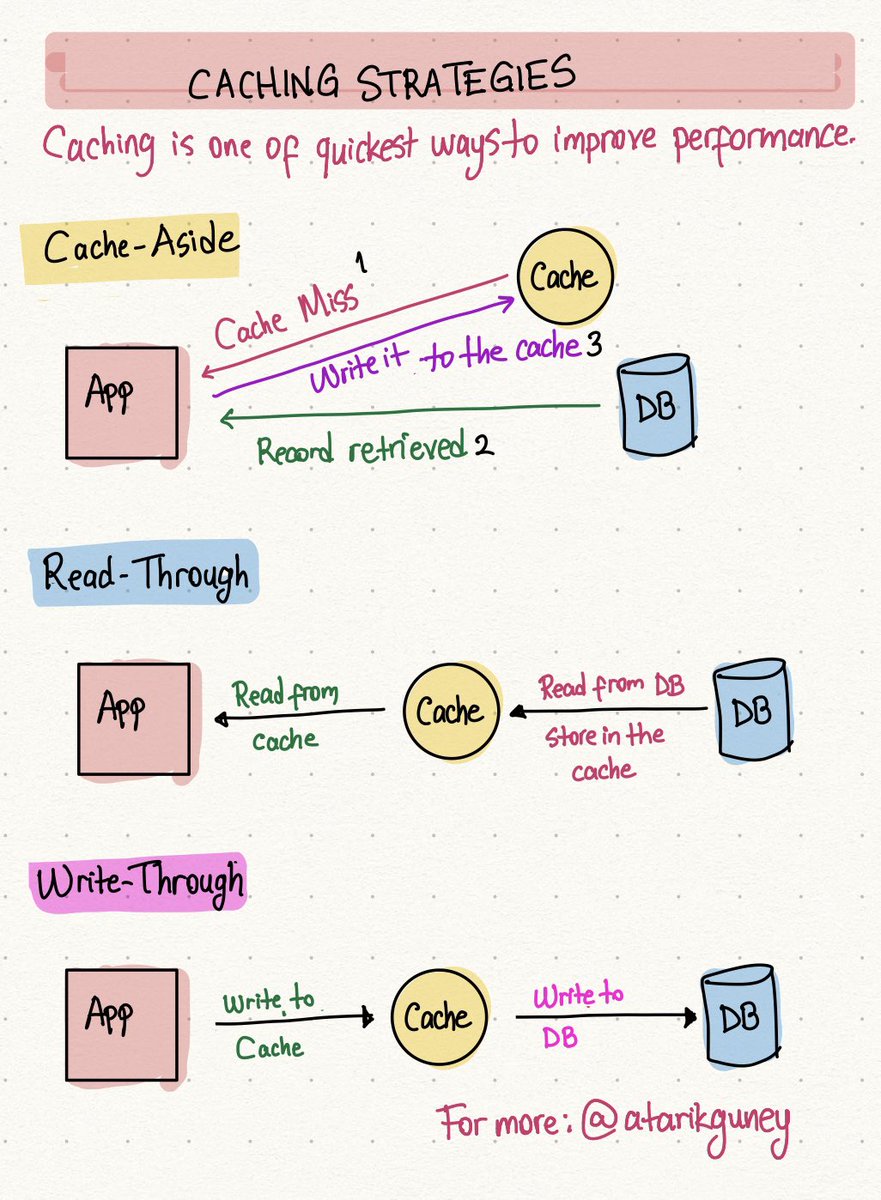 CACHING STRATEGIES
Caching is one of quickest ways to improve performance.
Cache-Aside
Cache Miss 1
Cache
Write it to the cache 3
App
DB
Record retrieved 2
Read-Through
App
Read from
cache
Cache
Read from DB
store in the
cache
DB
Write-Through
App
Write to
Cache
Cache
Write to
DB
DB
For more: @atarikguney